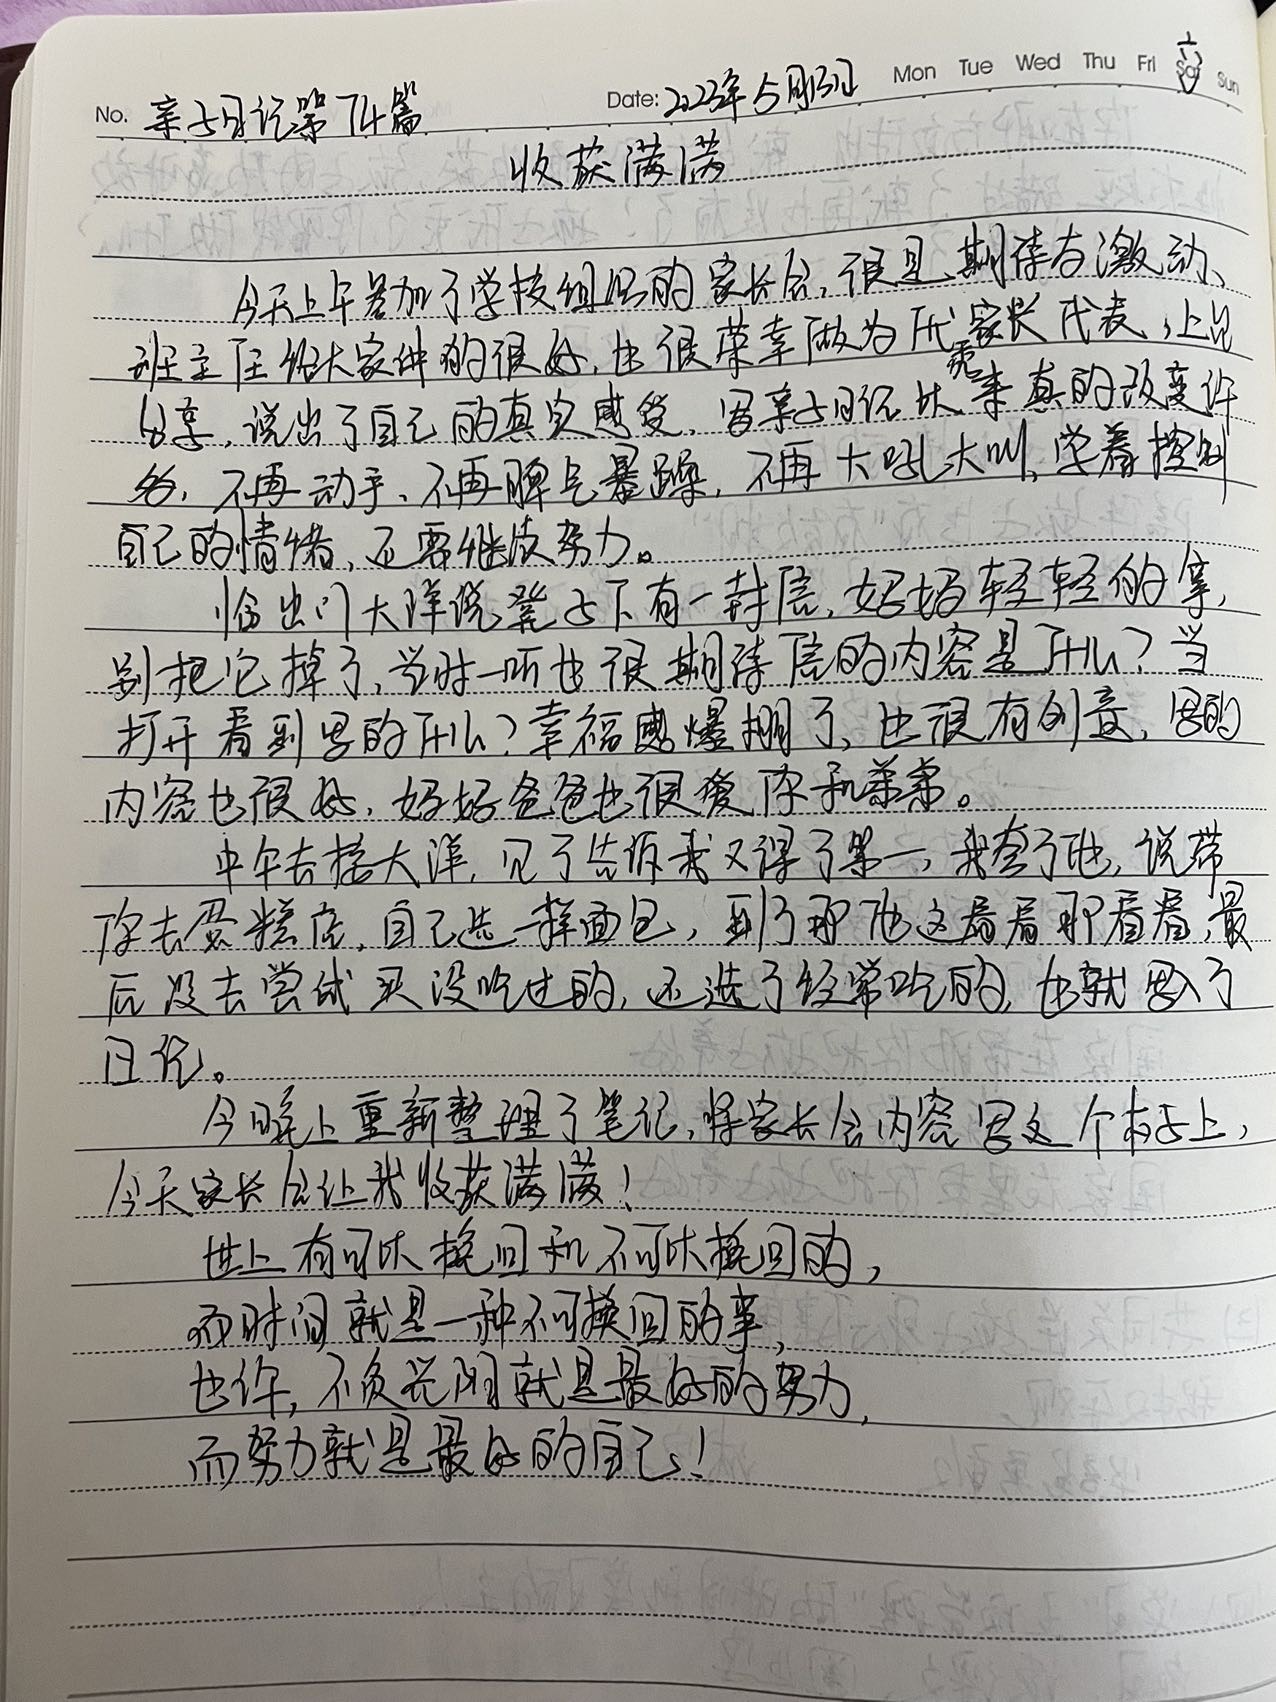 No. 亲子日记第74篇 Date: 2023年5月13日 Mon Tue Wed Thu Fri Sat Sun 六
收获满满
今天上午参加了学校组织的家长会，很是期待与激动、
班主任给大家仲的很好，也很荣幸做为代家长代表，上台
分享，说出了自己的真实感受，写亲子日记以来真的改变许
多，不再动手、不再脾气暴躁，不再大吼大叫，学着控制
自己的情绪，还需继续努力。
临出门大洋说凳子下有一封信，妈妈轻轻的拿，
别把它掉了，当时一听也很期待信的内容是什么？当
打开看到写的什么？幸福感爆棚了，也很有创意，写的
内容也很好，妈妈爸爸也很爱你和弟弟。
中午去接大洋，见了告诉我又得了第一，我夸了他，说带
你去蛋糕店，自己选一样面包，到了那他这看看那看看，最
后没去尝试买没吃过的，还选了经常吃的，也就写入了
日记。
今晚上重新整理了笔记，将家长会内容写这个本子上，
今天家长会让我收获满满！
世上有可以挽回和不可以挽回的，
而时间就是一种不可挽回的事，
也许，不负光阴就是最好的努力，
而努力就是最好的自己！